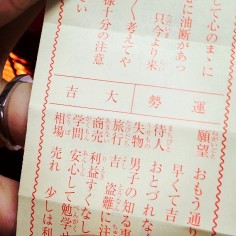 して心のまゝ
に油断があつ
只今より来
く考えてや
様十分の注意
い
運勢 大吉
願望 おもう通り
早くて吉
待人 おとづれな
失物 男子の知る事
旅行 吉 盗難に注
商売 利益すくなし
学問 安心して勉学
相場 売れ 少しは利